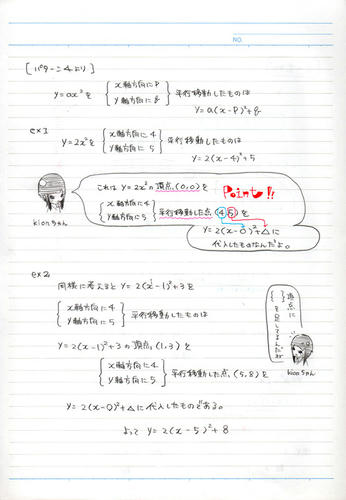 NO.
[パターン4より]
y=ax²を { x軸方向にp y軸方向にq } 平行移動したものは
y=a(x-p)²+q
ex1
y=2x²を { x軸方向に4 y軸方向に5 } 平行移動したものは
y=2(x-4)²+5
これは y=2x²の頂点(0,0)を
Point!!
{ x軸方向に4 y軸方向に5 } 平行移動した点(4,5)を
kionちゃん
y=2(x-○)²+△に
代入したものなんだよ。
ex2
同様に考えると y=2(x-1)²+3を
{ x軸方向に4 y軸方向に5 } 平行移動したものは
頂点に
{ }
を足してるんだね
kionちゃん
y=2(x-1)²+3の頂点(1,3)を
{ x軸方向に4 y軸方向に5 } 平行移動した点(5,8)を
y=2(x-○)²+△に代入したものである。
よって y=2(x-5)²+8